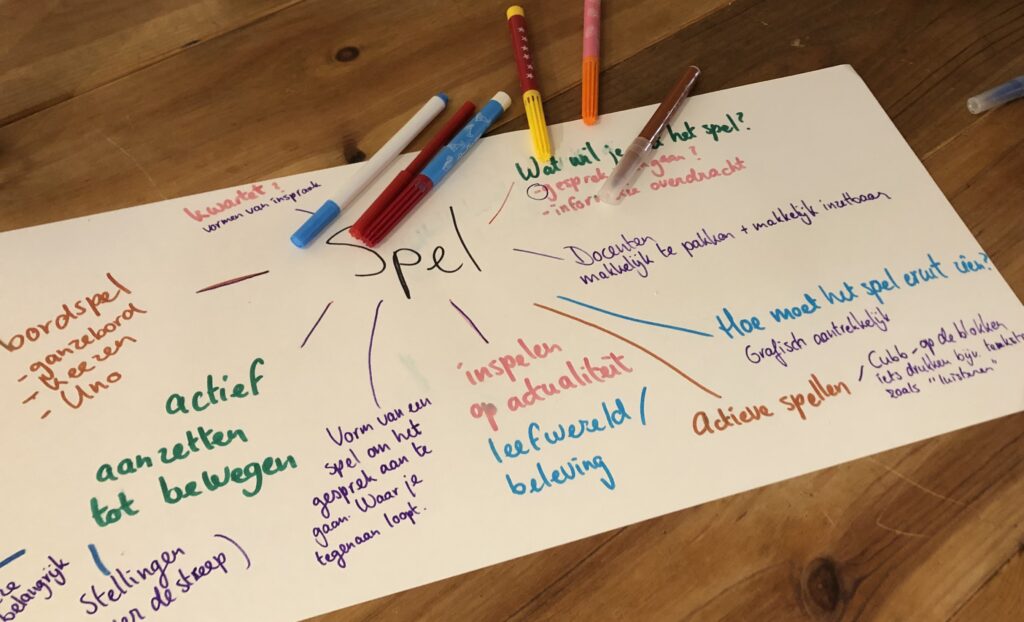 Wat wil je het spel?
- gesprek
- overdracht
kwartet?
vormen van inspraak
Spel
Docenten
makkelijk te pakken + makkelijk inzetbaar
bordspel
- ganzebord
- keezen
- Uno
Hoe moet het spel eruit zien?
Grafisch aantrekkelijk
actief
aanzetten
tot bewegen
Vorm van een
spel om het
gesprek aan te
gaan. Waar je
tegenaan loopt.
inspelen
op actualiteit
leefwereld /
beleving
Actieve spellen
Cubb - op de blokken
iets drukken bijv.
zoals "luisteren"
belangrijk
Stellingen
de streep)